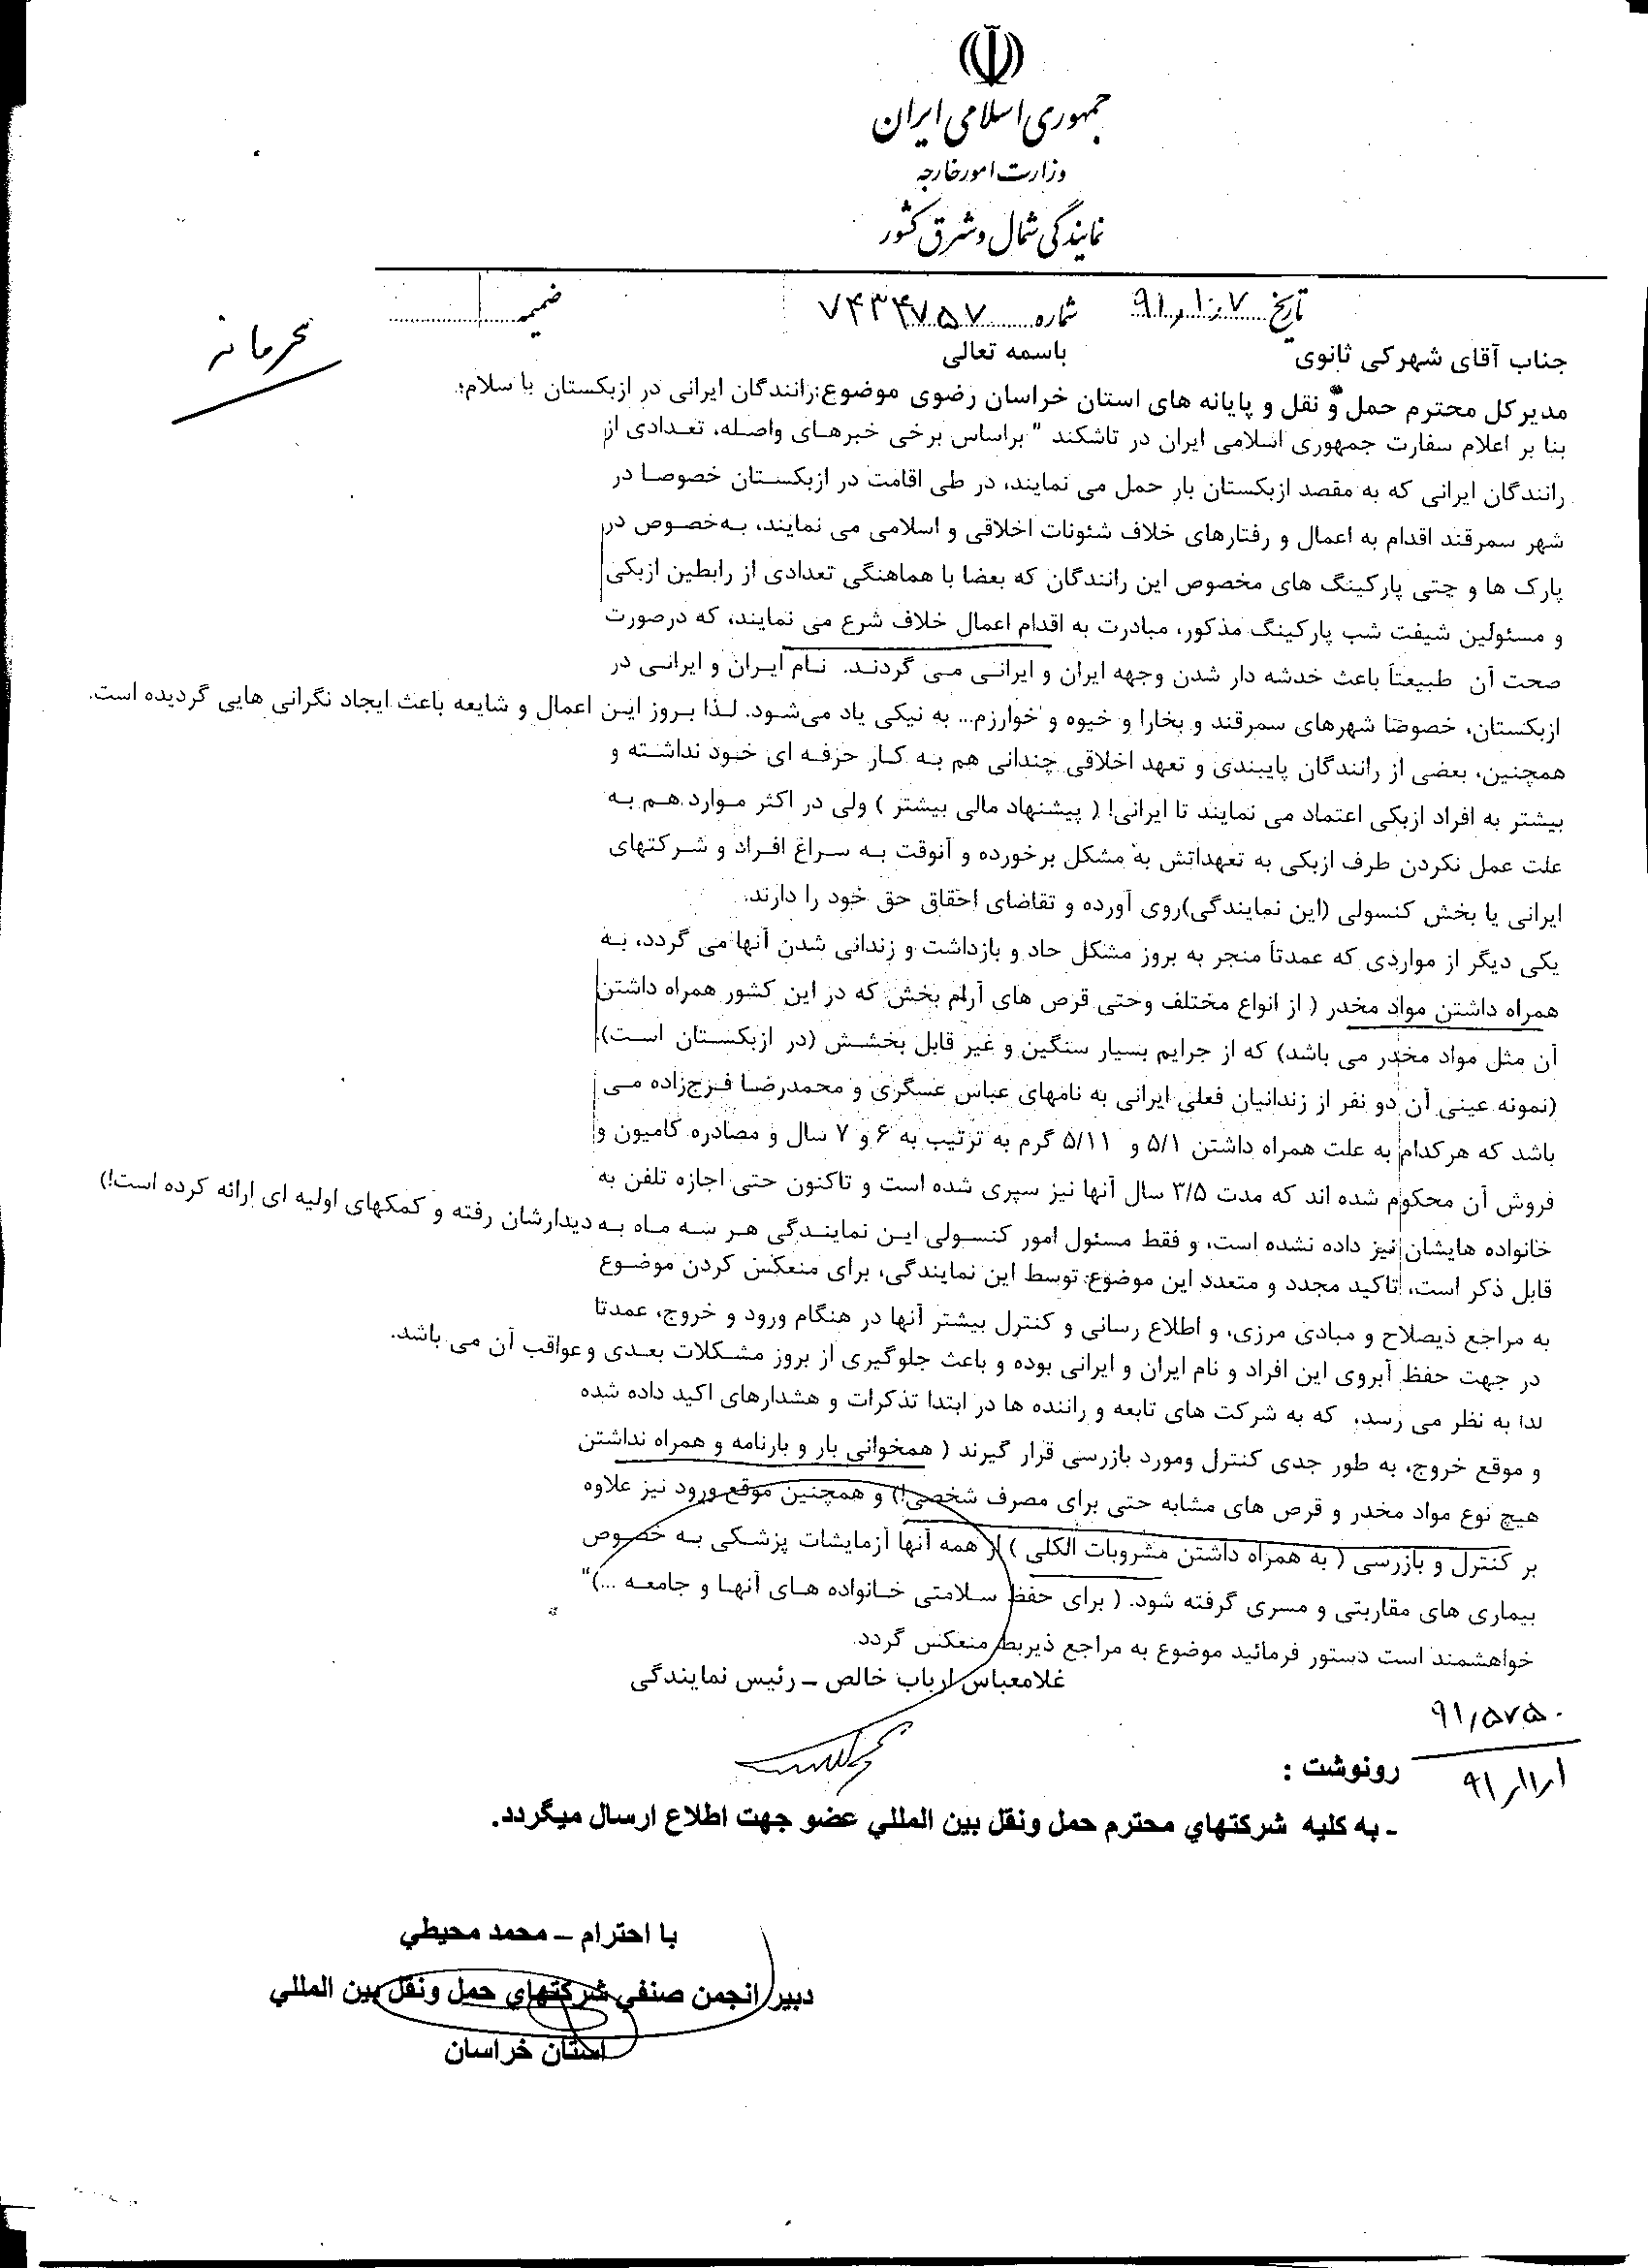 جمهوری اسلامی ایران
وزارت امور خارجه
نمایندگی شمال و شرق کشور
تاریخ ۹۱/۱۰/۷ شماره ۷۴۳۴۷۵۷ ضمیمه
محرمانه
باسمه تعالی
جناب آقای شهرکی ثانوی
مدیرکل محترم حمل و نقل و پایانه های استان خراسان رضوی موضوع:رانندگان ایرانی در ازبکستان با سلام؛
بنا بر اعلام سفارت جمهوری اسلامی ایران در تاشکند " براساس برخی خبرهای واصله، تعدادی از
رانندگان ایرانی که به مقصد ازبکستان بار حمل می نمایند، در طی اقامت در ازبکستان خصوصا در
شهر سمرقند اقدام به اعمال و رفتارهای خلاف شئونات اخلاقی و اسلامی می نمایند، به‌خصوص در
پارک ها و حتی پارکینگ های مخصوص این رانندگان که بعضا با هماهنگی تعدادی از رابطین ازبکی
و مسئولین شیفت شب پارکینگ مذکور، مبادرت به اقدام اعمال خلاف شرع می نمایند، که درصورت
صحت آن طبیعتاً باعث خدشه دار شدن وجهه ایران و ایرانی می گردند. نام ایران و ایرانی در
ازبکستان، خصوصا شهرهای سمرقند و بخارا و خیوه و خوارزم... به نیکی یاد می‌شود. لذا بروز این اعمال و شایعه باعث ایجاد نگرانی هایی گردیده است.
همچنین، بعضی از رانندگان پایبندی و تعهد اخلاقی چندانی هم به کار حرفه ای خود نداشته و
بیشتر به افراد ازبکی اعتماد می نمایند تا ایرانی! ( پیشنهاد مالی بیشتر ) ولی در اکثر موارد هم به
علت عمل نکردن طرف ازبکی به تعهداتش به مشکل برخورده و آنوقت به سراغ افراد و شرکتهای
ایرانی یا بخش کنسولی (این نمایندگی)روی آورده و تقاضای احقاق حق خود را دارند.
یکی دیگر از مواردی که عمدتاً منجر به بروز مشکل حاد و بازداشت و زندانی شدن آنها می گردد، به
همراه داشتن مواد مخدر ( از انواع مختلف وحتی قرص های آرام بخش که در این کشور همراه داشتن
آن مثل مواد مخدر می باشد) که از جرایم بسیار سنگین و غیر قابل بخشش (در ازبکستان است).
(نمونه عینی آن دو نفر از زندانیان فعلی ایرانی به نامهای عباس عسگری و محمدرضا فرج‌زاده می
باشد که هرکدام به علت همراه داشتن ۵/۱ و ۵/۱۱ گرم به ترتیب به ۶ و ۷ سال و مصادره کامیون و
فروش آن محکوم شده اند که مدت ۳/۵ سال آنها نیز سپری شده است و تاکنون حتی اجازه تلفن به
خانواده هایشان نیز داده نشده است، و فقط مسئول امور کنسولی این نمایندگی هر سه ماه به دیدارشان رفته و کمکهای اولیه ای ارائه کرده است!)
قابل ذکر است، تاکید مجدد و متعدد این موضوع توسط این نمایندگی، برای منعکس کردن موضوع
به مراجع ذیصلاح و مبادی مرزی، و اطلاع رسانی و کنترل بیشتر آنها در هنگام ورود و خروج، عمدتا
در جهت حفظ آبروی این افراد و نام ایران و ایرانی بوده و باعث جلوگیری از بروز مشکلات بعدی و عواقب آن می باشد.
لذا به نظر می رسد، که به شرکت های تابعه و راننده ها در ابتدا تذکرات و هشدارهای اکید داده شده
و موقع خروج، به طور جدی کنترل ومورد بازرسی قرار گیرند ( همخوانی بار و بارنامه و همراه نداشتن
هیچ نوع مواد مخدر و قرص های مشابه حتی برای مصرف شخصی!) و همچنین موقع ورود نیز علاوه
بر کنترل و بازرسی ( به همراه داشتن مشروبات الکلی ) از همه آنها آزمایشات پزشکی به خصوص
بیماری های مقاربتی و مسری گرفته شود. ( برای حفظ سلامتی خانواده های آنها و جامعه ...)"
خواهشمند است دستور فرمائید موضوع به مراجع ذیربط منعکس گردد.
غلامعباس ارباب خالص ـ رئیس نمایندگی
۹۱/۵۷۵۰
۹۱/۱۱/۱
رونوشت :
ـ به کلیه شرکتهاي محترم حمل ونقل بین المللي عضو جهت اطلاع ارسال میگردد.
با احترام – محمد محیطي
دبیر انجمن صنفي شرکتهاي حمل ونقل بین المللي
استان خراسان